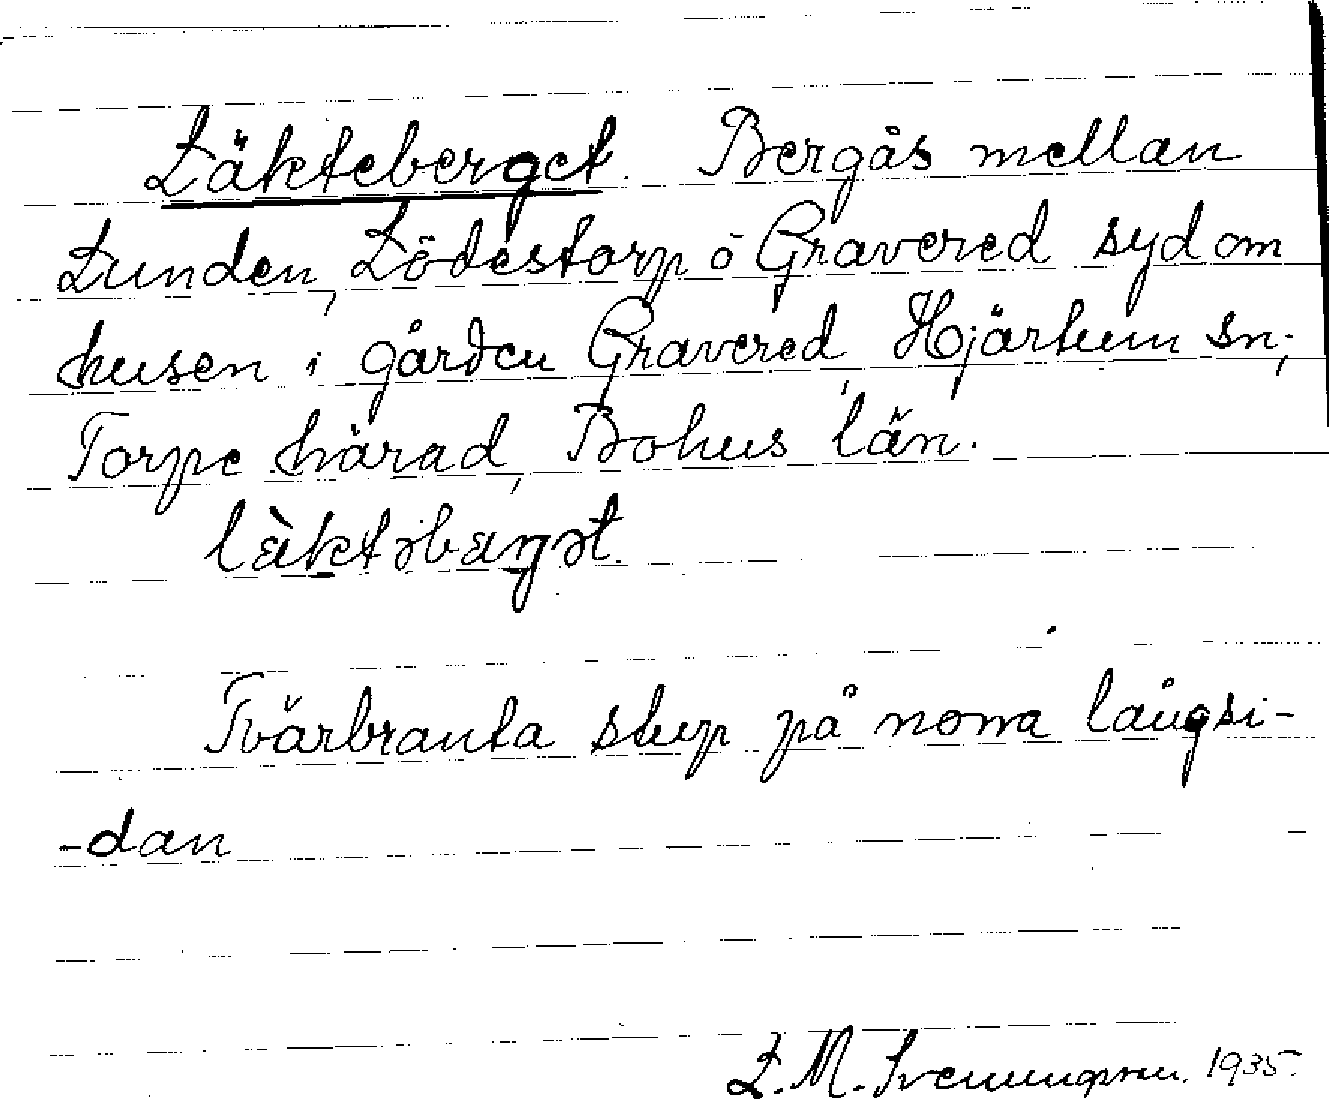 Läkteberget. Bergås mellan
Lunden, Lödestorp o Gravered syd om
husen i gården Gravered, Hjärtum sn;
Torpe härad, Bohus län.
lὲktəbærgət.
Tvärbranta stup på norra långsi-
-dan
L. M. Svenungsson. 1935.